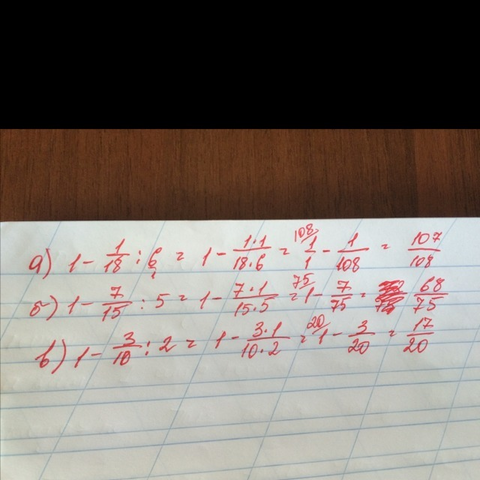 а) 1 - 1/18 : 6 = 1 - 1·1/18·6 = 108/ 1/1 - 1/108 = 107/108
б) 1 - 7/15 : 5 = 1 - 7·1/15·5 = 75/ 1 - 7/75 = 68/75
в) 1 - 3/10 : 2 = 1 - 3·1/10·2 = 20/ 1 - 3/20 = 17/20